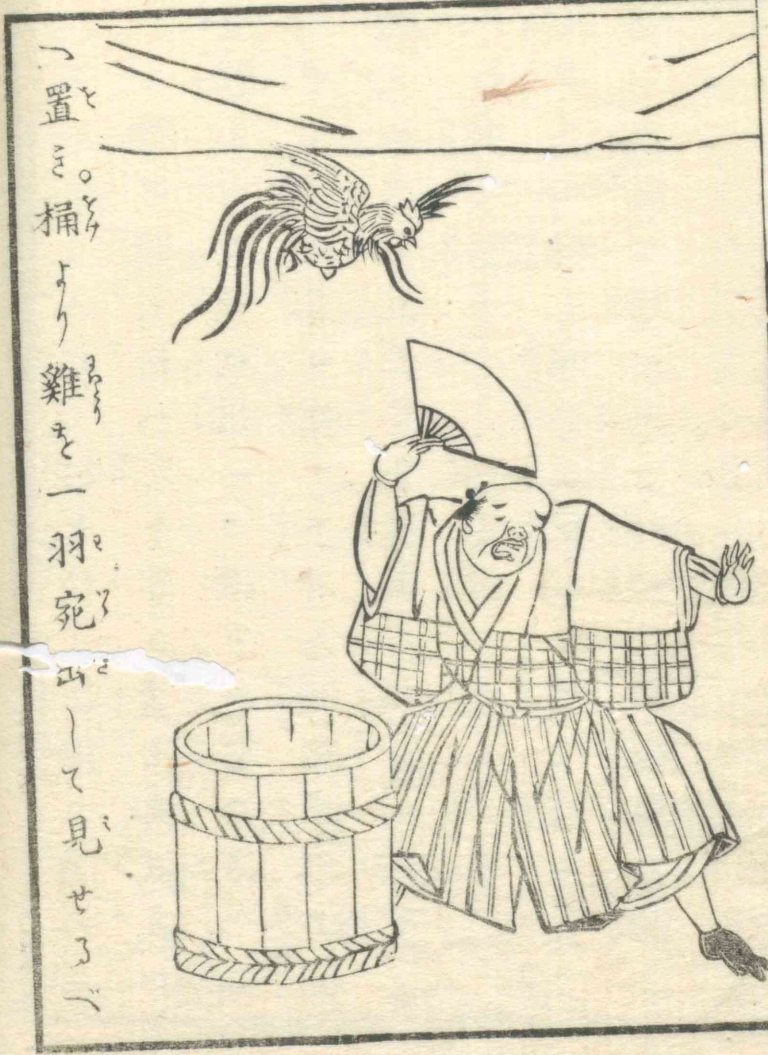 へ置き。桶より雞を一羽宛出して見せるべ